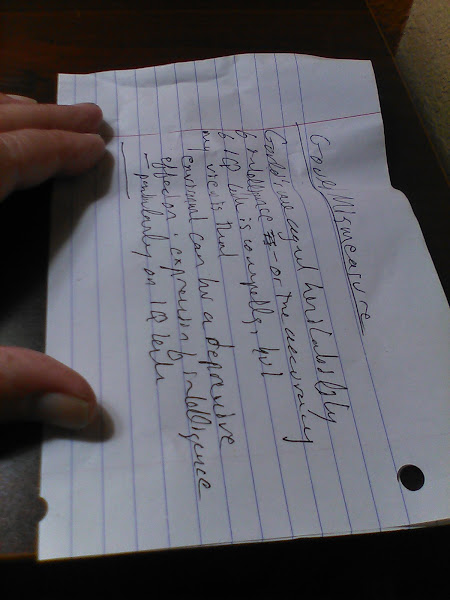 Gould Mismeasure
Gould's heritability
of intelligence - or the accuracy
of IQ is compelling, but
my view is that
environment can have a depressive
effect on expression of intelligence
- particularly on IQ tests